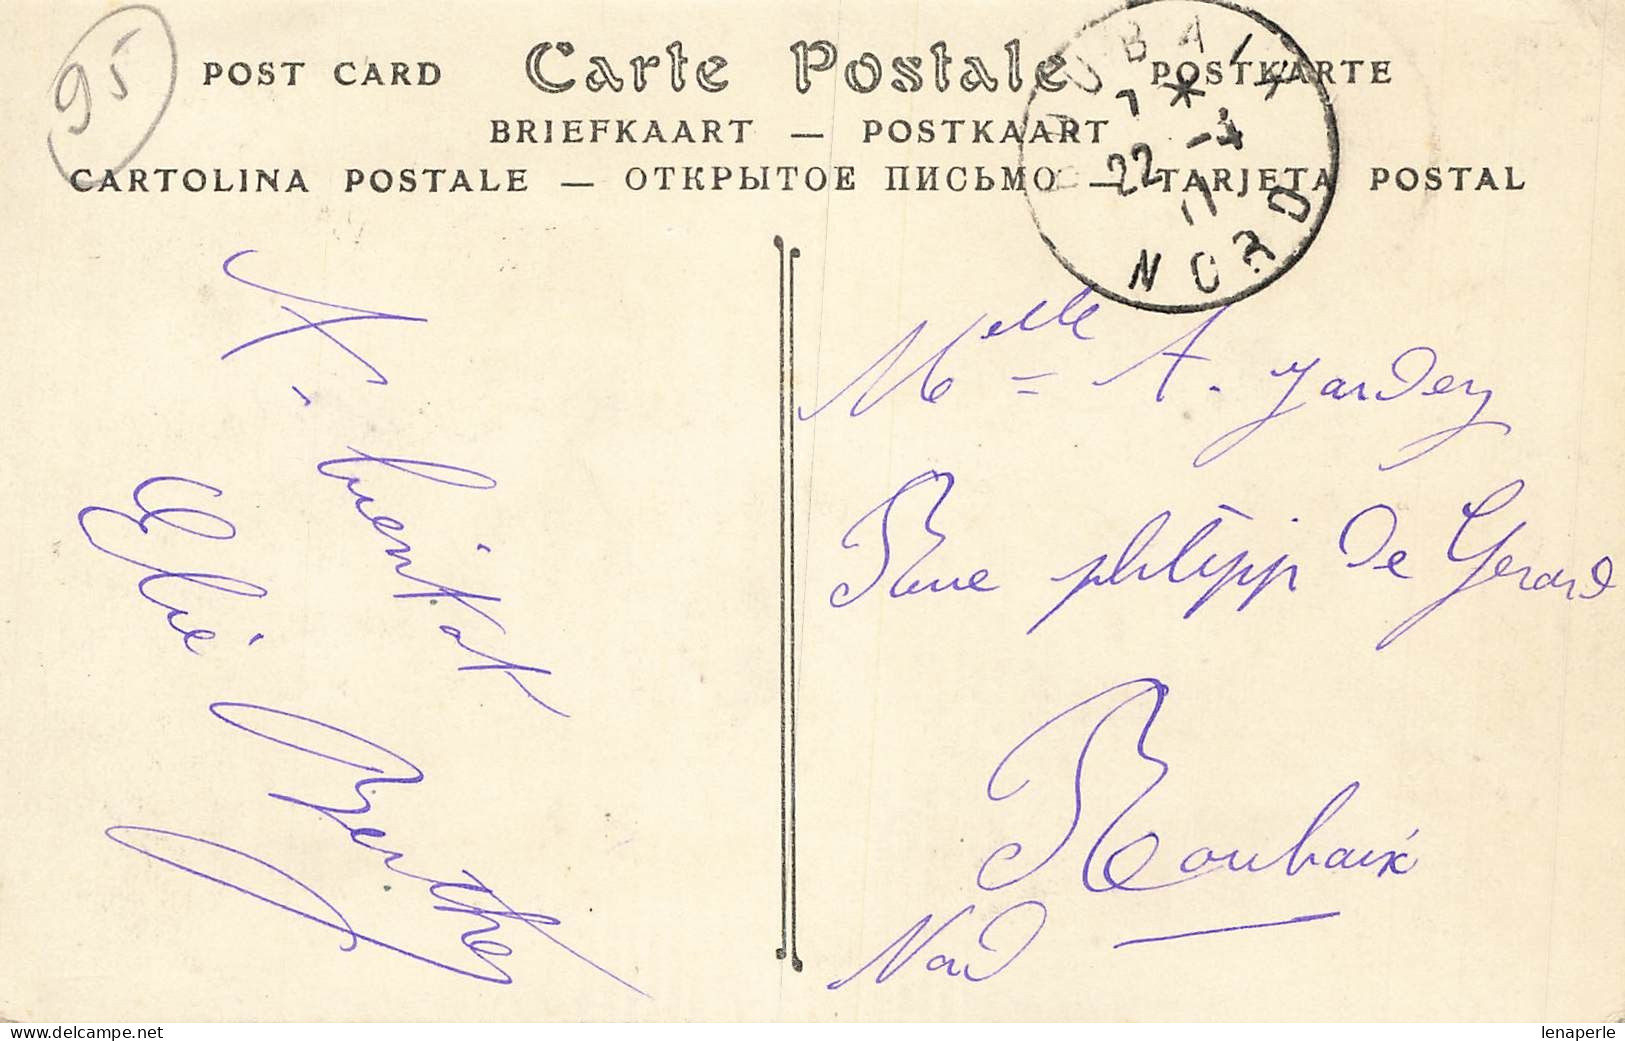 95
POST CARD Carte Postale POSTKARTE
BRIEFKAART — POSTKAART
CARTOLINA POSTALE — ОТКРЫТОЕ ПИСЬМО — TARJETA POSTAL
ROUBAIX
7 * 
22 - 4
11
NORD
A. bientot
Elie Berthe
Melle = A. Jardez
Rue philipp de Gerard
Roubaix
Nord
www.delcampe.net
lenaperle